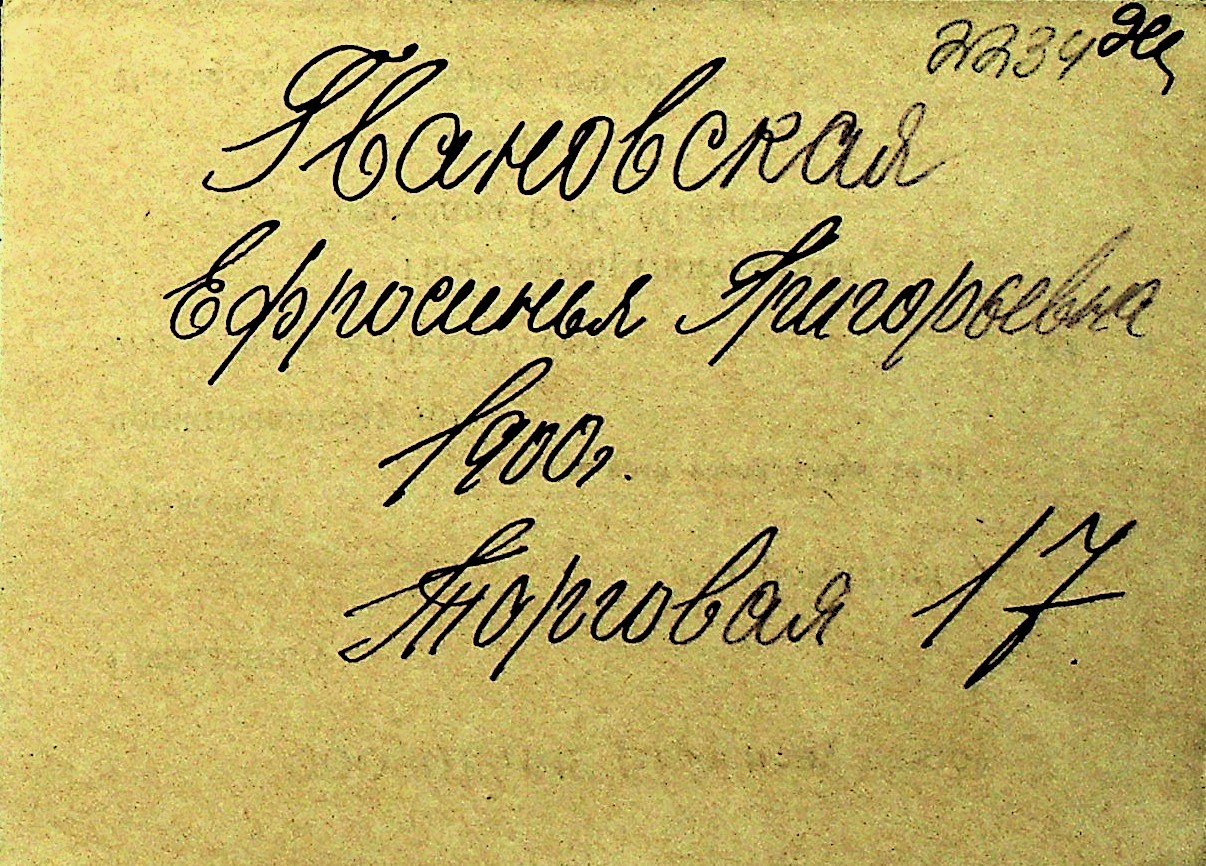 2234
Ивановская
Ефросинья Григорьевна
1900г.
Торговая 17.